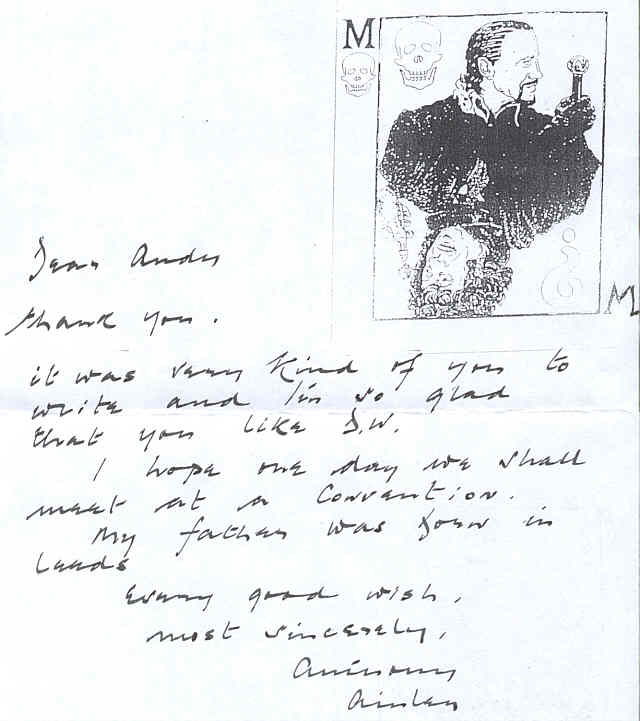 M
M
Dear Andy
thank you.
it was very kind of you to
write and I'm so glad
that you like D.W.
I hope one day we shall
meet at a Convention.
My father was born in
Leeds
Every good wish,
most sincerely,
Anthony
Ainley